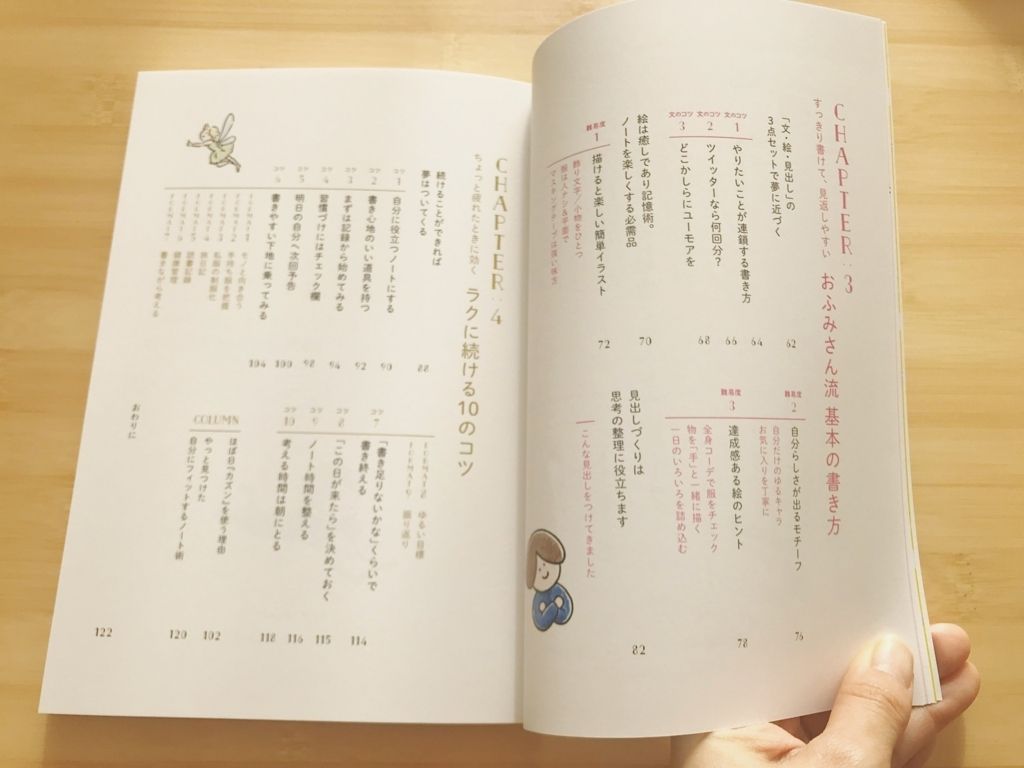 CHAPTER:3
すっきり書けて、見返しやすい
おふみさん流 基本の書き方
「文・絵・見出し」の
3点セットで夢に近づく
62
文のコツ
1
やりたいことが連鎖する書き方
64
文のコツ
2
ツイッターなら何回分?
66
文のコツ
3
どこかしらにユーモアを
68
絵は癒しであり記憶術。
ノートを楽しくする必需品
70
難易度
1
描けると楽しい簡単イラスト
72
飾り文字/小物をひとつ
服は人ナシ&平面で
マスキングテープは強い味方
難易度
2
自分らしさが出るモチーフ
76
自分だけのゆるキャラ
お気に入りを丁寧に
難易度
3
達成感ある絵のヒント
78
全身コーデで服をチェック
物を「手」と一緒に描く
一日のいろいろを詰め込む
見出しづくりは
思考の整理に役立ちます
82
こんな見出しをつけてきました
CHAPTER:4
ちょっと疲れたときに効く
ラクに続ける10のコツ
続けることができれば
夢はついてくる
88
コツ
1
自分に役立つノートにする
90
コツ
2
書き心地のいい道具を持つ
92
コツ
3
まずは記録から始めてみる
94
コツ
4
習慣づけにはチェック欄
98
コツ
5
明日の自分へ次回予告
100
コツ
6
書きやすい下地に乗ってみる
104
モノと向き合う
手持ち服を把握
私服の制服化
旅日記
読書記録
健康管理
書きながら考える
ゆるい目標
振り返り
コツ
7
「書き足りないかな」くらいで
書き終える
114
コツ
8
「この日が来たら」を決めておく
115
コツ
9
ノート時間を整える
116
コツ
10
考える時間は朝にとる
118
COLUMN
ほぼ日「カズン」を使う理由
102
やっと見つけた
自分にフィットするノート術
120
おわりに
122